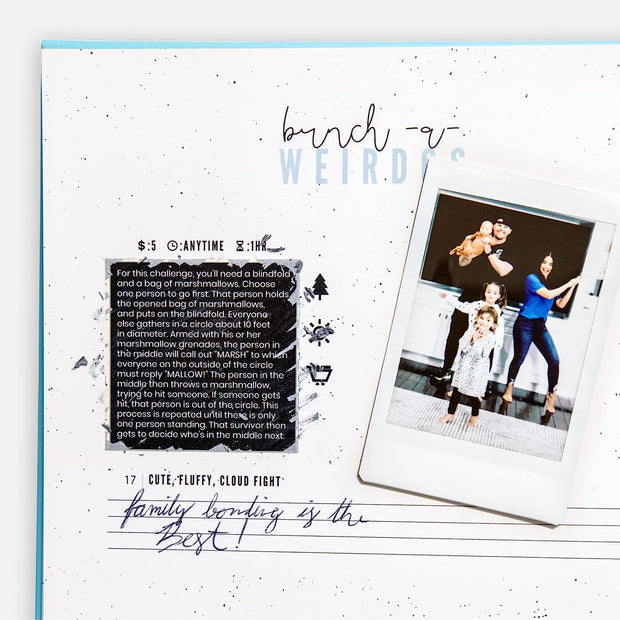 bunch -a-
WEIRDOS
$:5 :ANYTIME :1HR
For this challenge, you'll need a blindfold
and a bag of marshmallows. Choose
one person to go first. That person holds
the opened bag of marshmallows,
and puts on the blindfold. Everyone
else gathers in a circle about 10 feet
in diameter. Armed with his or her
marshmallow grenades, the person in
the middle will call out "MARSH" to which
everyone on the outside of the circle
must reply "MALLOW!" The person in the
middle then throws a marshmallow,
trying to hit someone. If someone gets
hit, that person is out of the circle. This
process is repeated until there is only
one person standing. That survivor then
gets to decide who's in the middle next.
17 | CUTE, FLUFFY, CLOUD FIGHT
family bonding is the
Best!